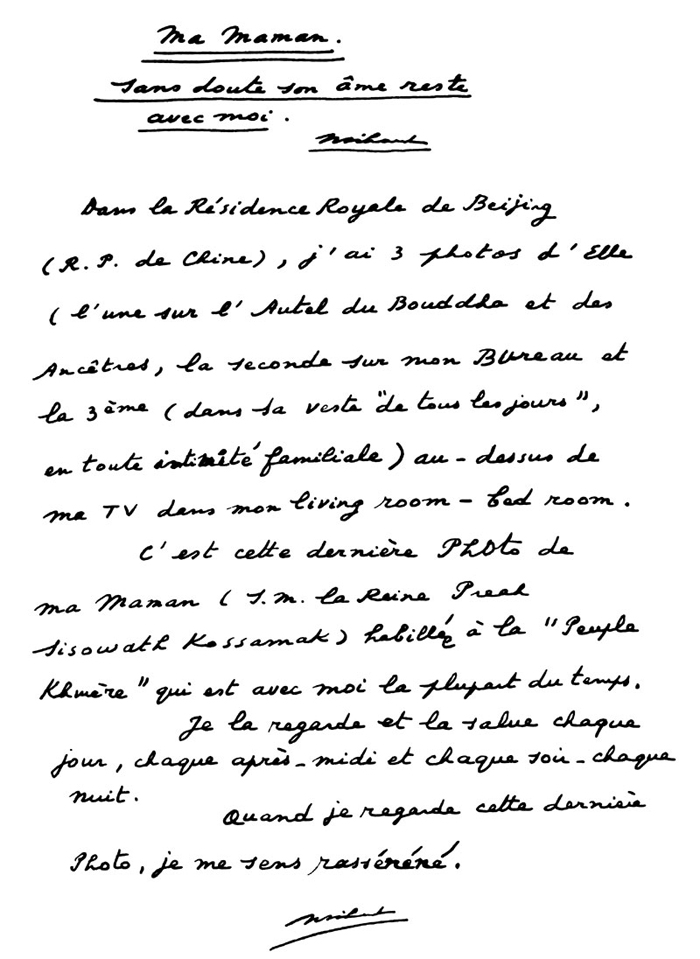 Ma Maman.
Sans doute son âme reste
avec moi.
Dans la Résidence Royale de Beijing
(R. P. de Chine), j'ai 3 photos d'Elle
(l'une sur l'Autel du Bouddha et des
Ancêtres, la seconde sur mon BUreau et
la 3ème (dans sa veste "de tous les jours",
en toute intimité familiale) au-dessus de
ma TV dans mon living room - bed room.
C'est cette dernière PhOto de
ma Maman (S.M. la Reine Preah
Sisowath Kossamak) habillée à la "Peuple
Khmère" qui est avec moi la plupart du temps.
Je la regarde et la salue chaque
jour, chaque après-midi et chaque soir-chaque
nuit.
Quand je regarde cette dernière
Photo, je me sens rasséréné.